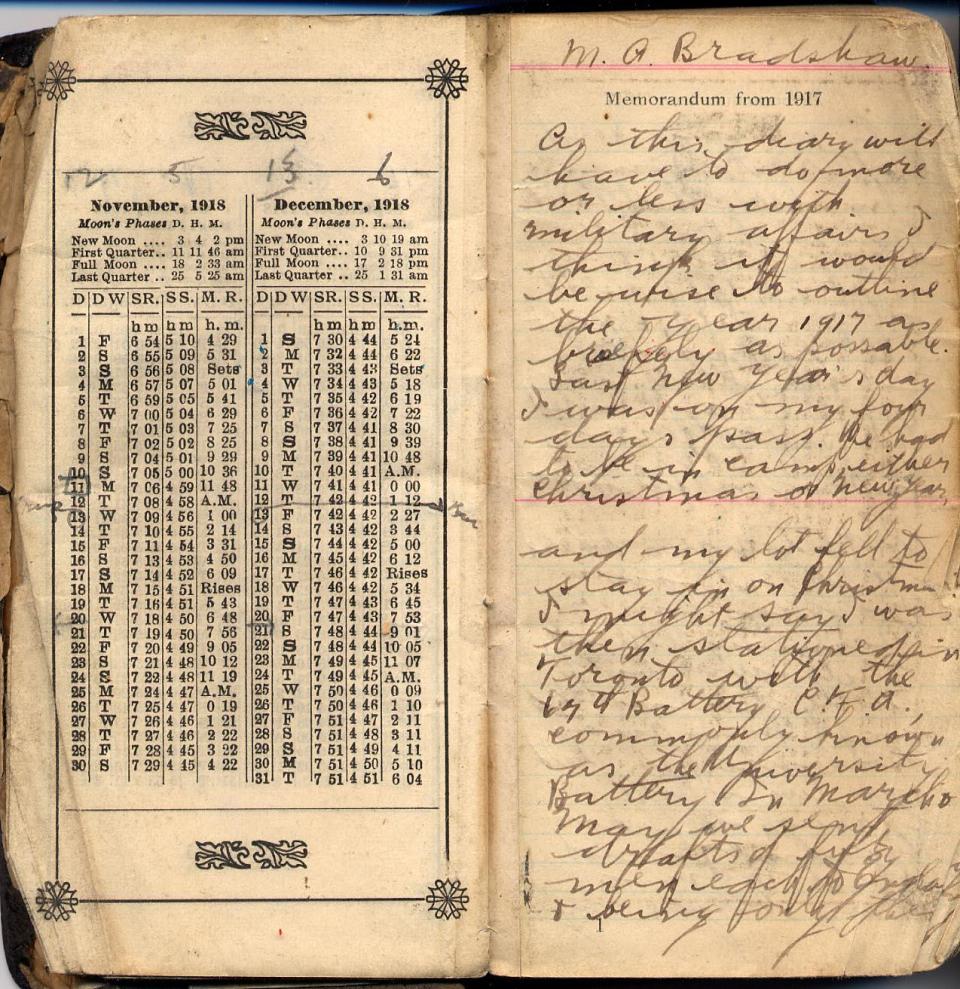 12 5 13 6
November, 1918
Moon's Phases D. H. M.
New Moon .... 3 4 2 pm
First Quarter.. 11 11 46 am
Full Moon .... 18 2 33 am
Last Quarter .. 25 5 25 am
D D W SR. S S. M. R.
h m h m h. m.
1 F 6 54 5 10 4 29
2 S 6 55 5 09 5 31
3 S 6 56 5 08 Sets
4 M 6 57 5 07 5 01
5 T 6 59 5 05 5 41
6 W 7 00 5 04 6 29
7 T 7 01 5 03 7 25
8 F 7 02 5 02 8 25
9 S 7 04 5 01 9 29
10 S 7 05 5 00 10 36
11 M 7 06 4 59 11 48
12 T 7 08 4 58 A.M.
13 W 7 09 4 56 1 00
14 T 7 10 4 55 2 14
15 F 7 11 4 54 3 31
16 S 7 13 4 53 4 50
17 S 7 14 4 52 6 09
18 M 7 15 4 51 Rises
19 T 7 16 4 51 5 43
20 W 7 18 4 50 6 48
21 T 7 19 4 50 7 56
22 F 7 20 4 49 9 05
23 S 7 21 4 48 10 12
24 S 7 22 4 48 11 19
25 M 7 24 4 47 A.M.
26 T 7 25 4 47 0 19
27 W 7 26 4 46 1 21
28 T 7 27 4 46 2 22
29 F 7 28 4 45 3 22
30 S 7 29 4 45 4 22
December, 1918
Moon's Phases D. H. M.
New Moon .... 3 10 19 am
First Quarter.. 10 9 31 pm
Full Moon .... 17 2 18 pm
Last Quarter .. 25 1 31 am
D D W SR. S S. M. R.
h m h m h.m.
1 S 7 30 4 44 5 24
2 M 7 32 4 44 6 22
3 T 7 33 4 43 Sets
4 W 7 34 4 43 5 18
5 T 7 35 4 42 6 19
6 F 7 36 4 42 7 22
7 S 7 37 4 41 8 30
8 S 7 38 4 41 9 39
9 M 7 39 4 41 10 48
10 T 7 40 4 41 A.M.
11 W 7 41 4 41 0 00
12 T 7 42 4 42 1 12
13 F 7 42 4 42 2 27
14 S 7 43 4 42 3 44
15 S 7 44 4 42 5 00
16 M 7 45 4 42 6 12
17 T 7 46 4 42 Rises
18 W 7 46 4 42 5 34
19 T 7 47 4 43 6 45
20 F 7 47 4 43 7 53
21 S 7 48 4 44 9 01
22 S 7 48 4 44 10 05
23 M 7 49 4 45 11 07
24 T 7 49 4 45 A.M.
25 W 7 50 4 46 0 09
26 T 7 50 4 46 1 10
27 F 7 51 4 47 2 11
28 S 7 51 4 48 3 11
29 S 7 51 4 49 4 11
30 M 7 51 4 50 5 10
31 T 7 51 4 51 6 04
M. A. Bradshaw.
Memorandum from 1917
As this diary will
have to do more
or less with
military affairs I
think it would
be wise to outline
the year 1917 as
briefly as possable.
Last New Year's day
I was on my four
days pass. We had
to be in camp either
Christmas or New Year,
and my lot fell to
stay in on Christmas
I might say I was
then stationed in
Toronto with the
67th Battery C.F.A.,
commonly known
as the University
Battery. In March &
May we send
drafts of fifty
men each to England
& being only
1